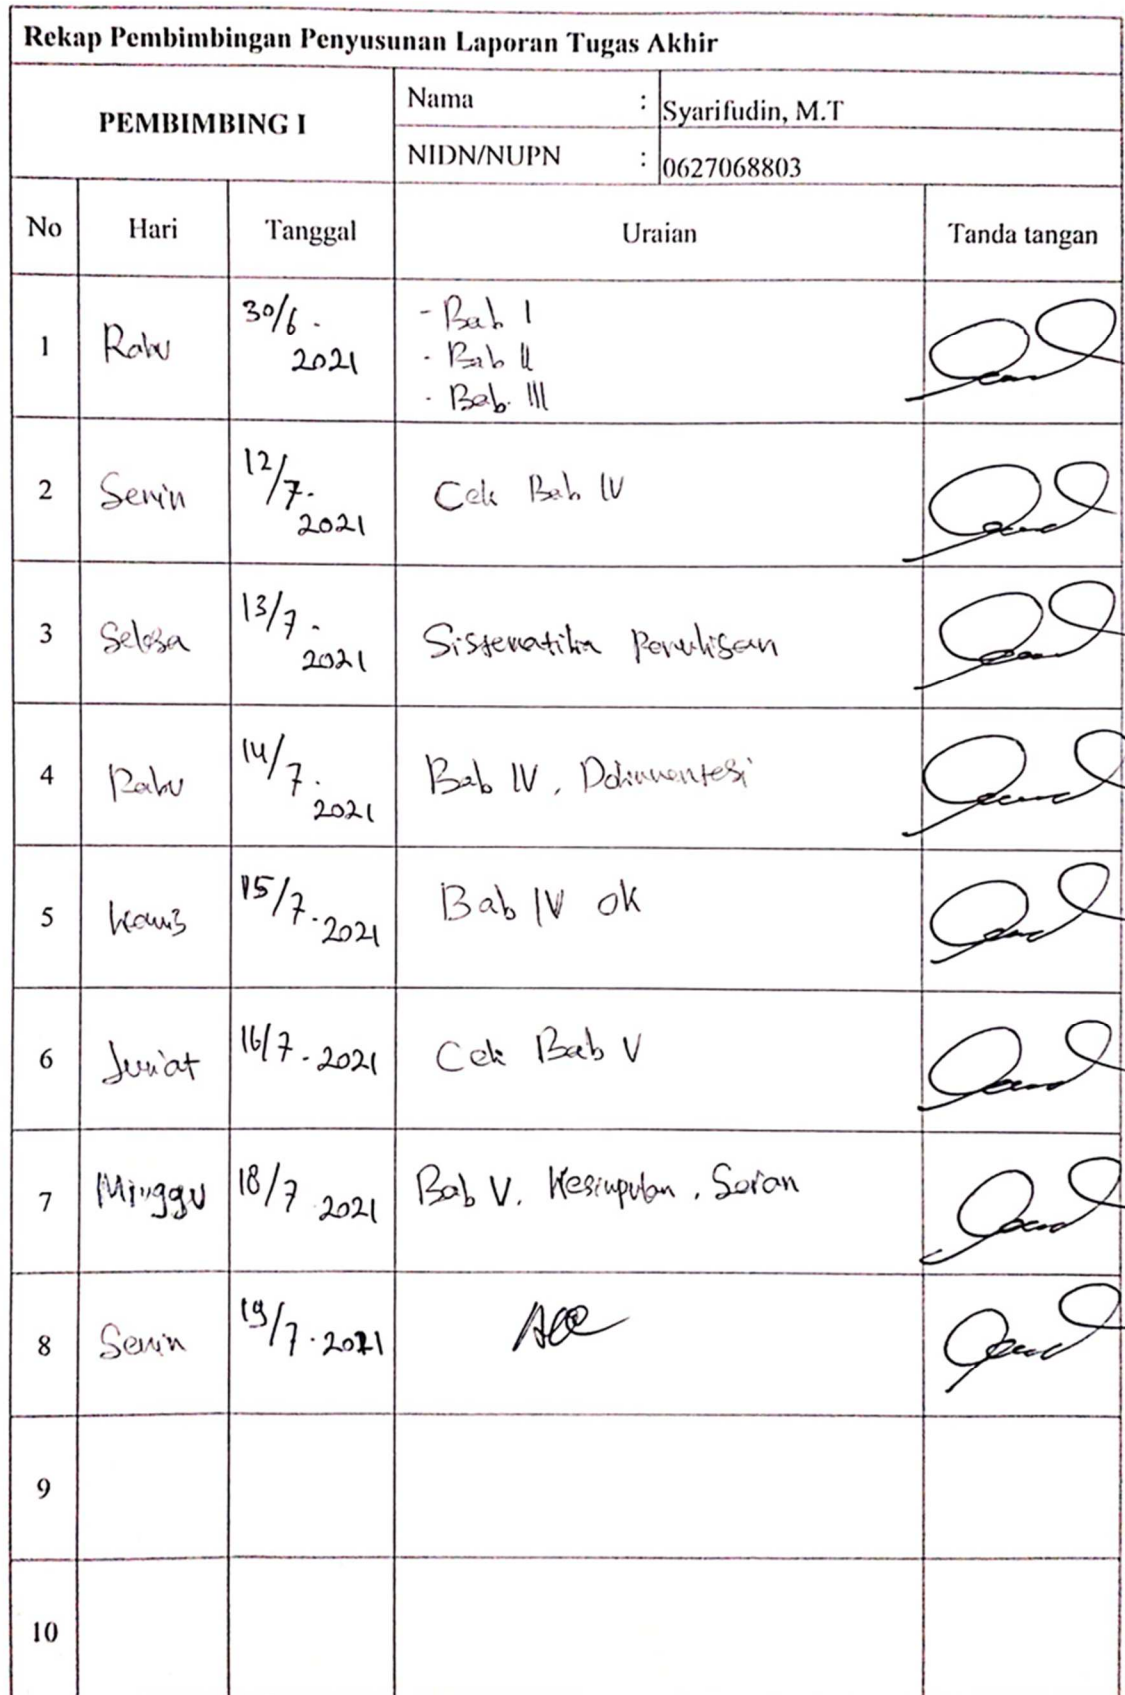 Rekap Pembimbingan Penyusunan Laporan Tugas Akhir
PEMBIMBING I
Nama : Syarifudin, M.T
NIDN/NUPN : 0627068803
No Hari Tanggal Uraian Tanda tangan
1 Rabu 30/6. 2021 - Bab I
- Bab II
- Bab. III
2 Senin 12/7. 2021 Cek Bab IV
3 Selasa 13/7. 2021 Sistematika Penulisan
4 Rabu 14/7. 2021 Bab IV, Dokumentasi
5 Kamis 15/7. 2021 Bab IV ok
6 Jum'at 16/7. 2021 Cek Bab V
7 Minggu 18/7 2021 Bab V. Kesimpulan, Saran
8 Senin 19/7. 2021 Acc
9
10